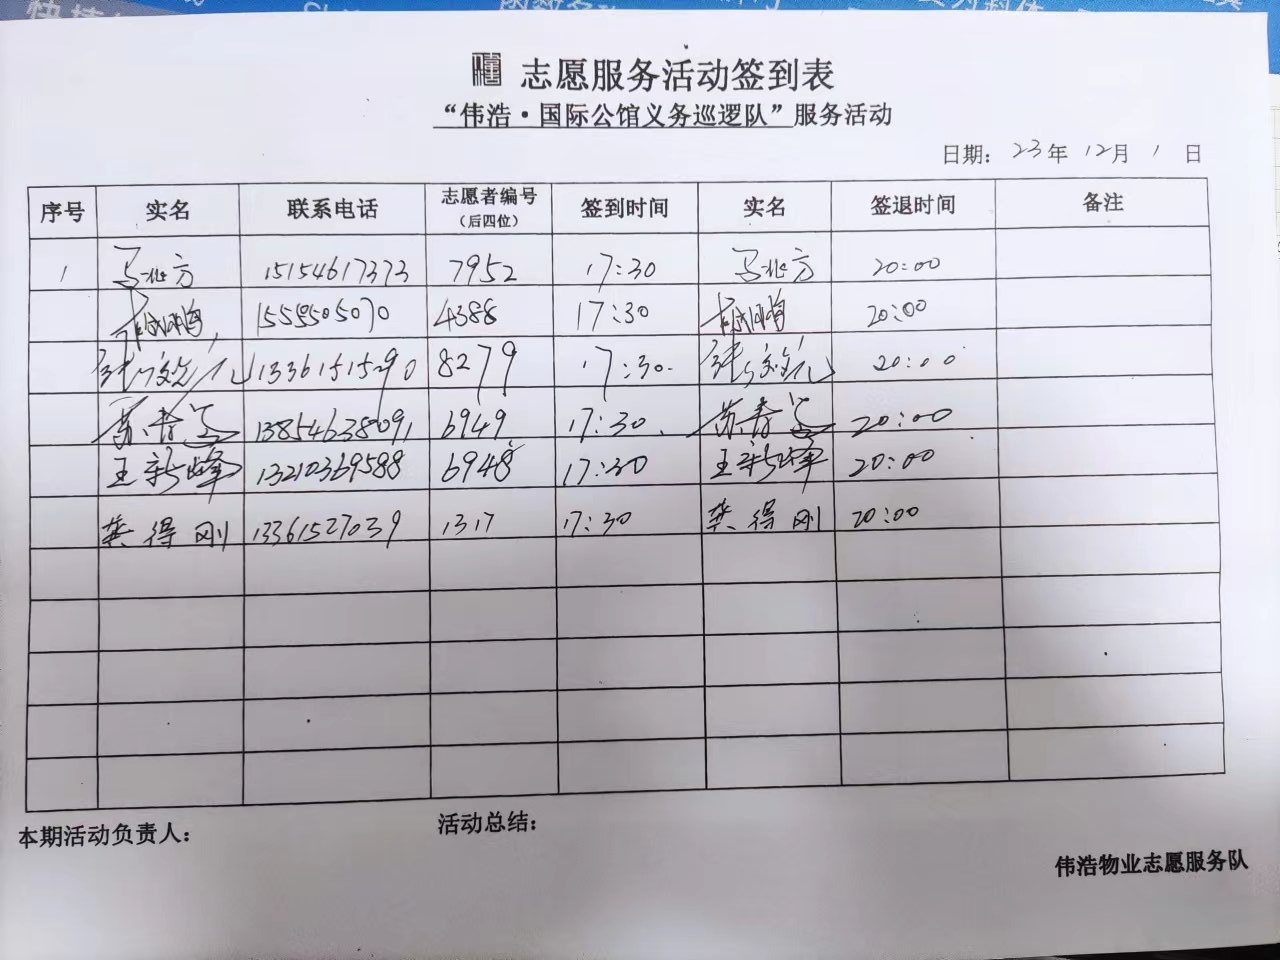 志愿服务活动签到表
“伟浩·国际公馆义务巡逻队”服务活动
日期：23年12月1日
序号 实名 联系电话 志愿者编号（后四位） 签到时间 实名 签退时间 备注
1 马北方 15154617373 7952 17:30 马北方 20:00
15555505070 4388 17:30 20:00
13361515290 8279 17:30 20:00
13854638091 6949 17:30 20:00
王新峰 13210369588 6948 17:30 王新峰 20:00
龚得刚 13361527039 1317 17:30 龚得刚 20:00
本期活动负责人： 活动总结：
伟浩物业志愿服务队